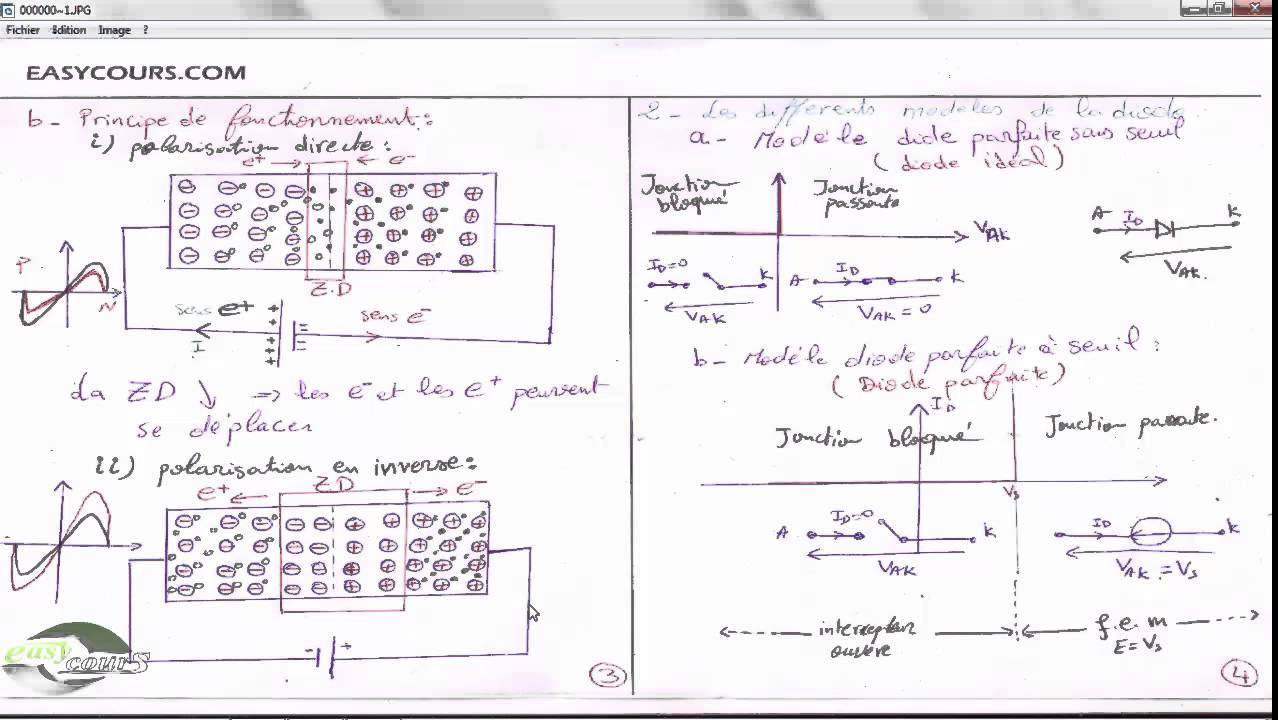 000000~1.JPG
Fichier Edition Image ?
EASYCOURS.COM
b- Principe de fonctionnement:
i) polarisation directe:
e+ e-
Z.D
P
N
sens e+
sens e-
I
La ZD ↓ => les e- et les e+ peuvent
se déplacer
ii) polarisation en inverse:
e+ ZD e-
easy
cours
3
2- Les differents modèles de la diode
a- Modéle diode parfaite sans seuil
(diode idéal)
Jonction
bloqué
Jonction
passante
VAK
A ID K
VAK.
ID=0 K
VAK
A ID K
VAK=0
b- Modéle diode parfaite à seuil:
(Diode parfaite)
ID
Jonction bloqué
Jonction passante.
Vs
A ID=0 K
VAK
ID K
VAK = Vs
ouvere
f.e.m
E=Vs
4